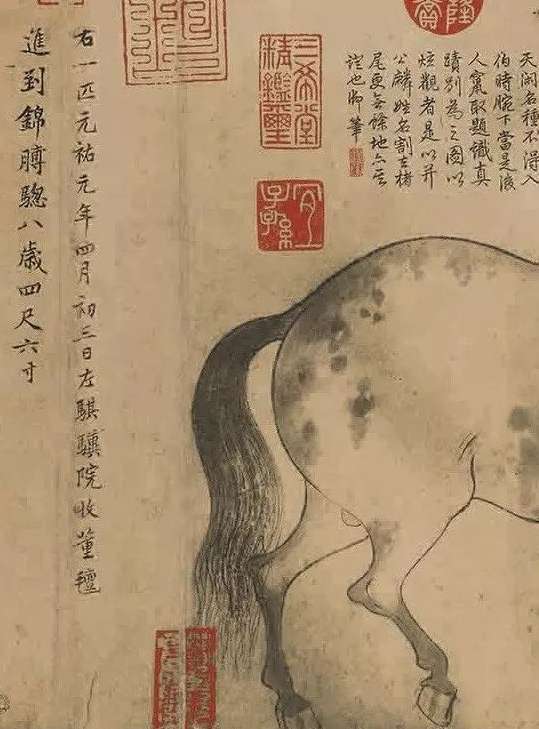 天閑名種不得入
伯時腕下當是後
人竄取題識真
蹟別為之圖以
炫觀者是以并
公麟姓名割去楮
尾更無餘地亦
證也御筆
三希堂
精鑑璽
宜
子孫
右一匹元祐元年四月初三日左騏驥院收董氊
進到錦膊驄八歲四尺六寸